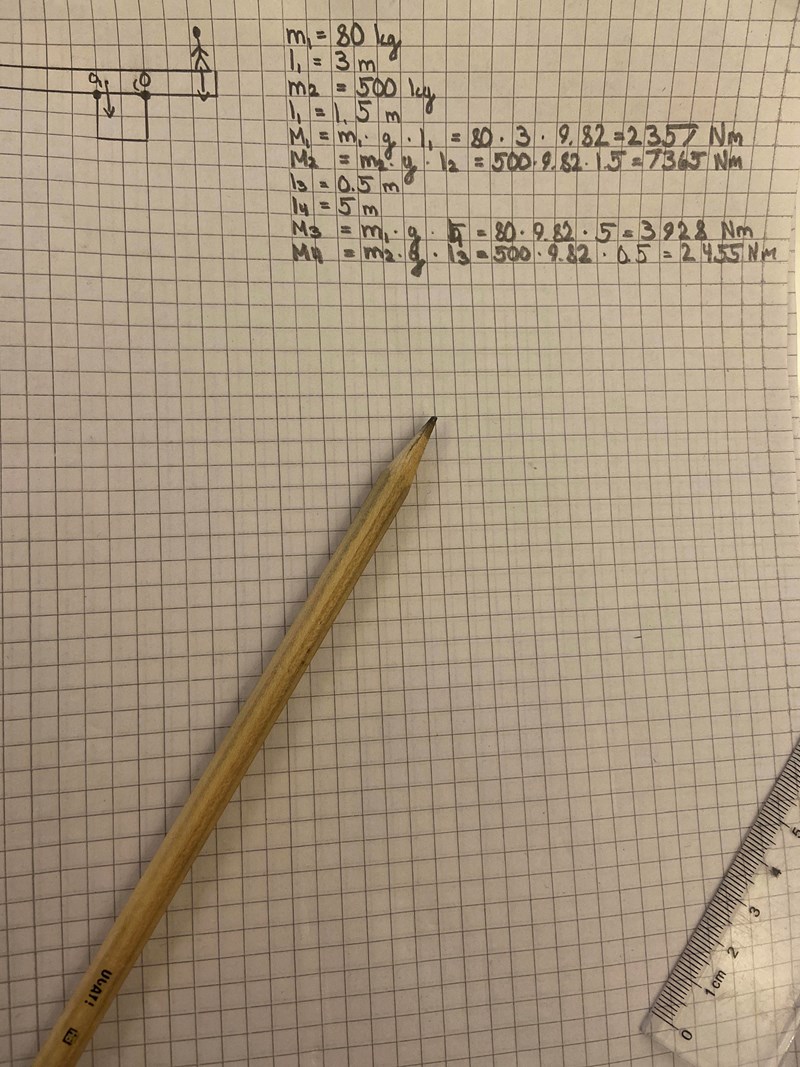 m₁ = 80 kg
l₁ = 3 m
m2 = 500 kg
l₁ = 1.5 m
M₁ = m₁ · g · l₁ = 80 · 3 · 9.82 = 2357 Nm
M2 = m2 · g · l2 = 500 · 9.82 · 1.5 = 7365 Nm
l3 = 0.5 m
l4 = 5 m
M3 = m₁ · g · = 80 · 9.82 · 5 = 3928 Nm
M4 = m2 · g · l3 = 500 · 9.82 · 0.5 = 2455 Nm
0 1cm 2 3 4 5